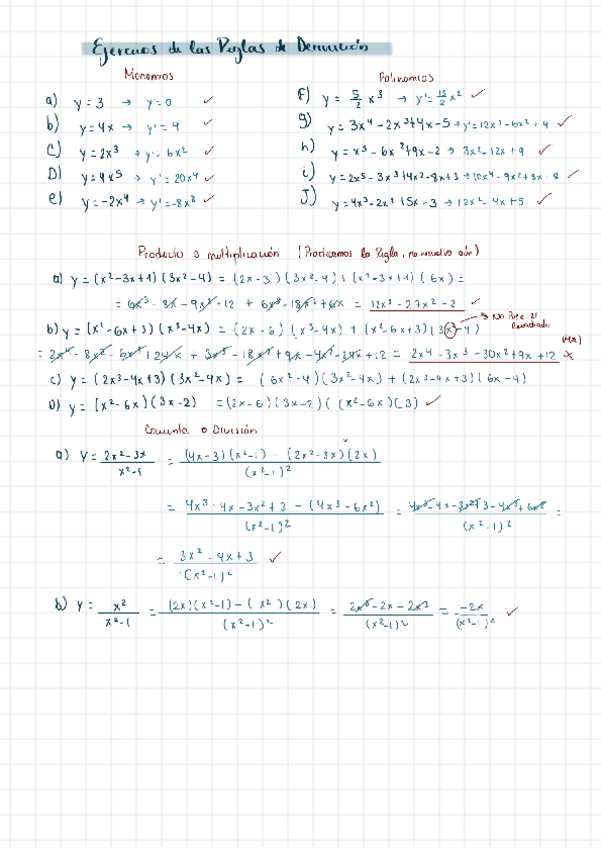 Ejercicios de las Reglas de Derivación
Monomios
a) y = 3 → y = 0 ✓
b) y = 4x → y' = 4 ✓
c) y = 2x³ → y' = 6x² ✓
D) y = 4x⁵ → y' = 20x⁴ ✓
e) y = -2x⁴ → y' = -8x³ ✓
Polinomios
F) y = 5/2 x³ → y' = 15/2 x² ✓
g) y = 3x⁴ - 2x³ + 4x - 5 → y' = 12x³ - 6x² + 4 ✓
h) y = x³ - 6x² + 9x - 2 → 3x² - 12x + 9 ✓
i) y = 2x⁵ - 3x³ + 4x² - 8x + 3 → 10x⁴ - 9x² + 8x - 8 ✓
J) y = 4x³ - 2x² + 5x - 3 → 12x² - 4x + 5 ✓
Producto o multiplicación (Practicamos la Regla, no resuelvo aún)
a) y = (x² - 3x + 1)(3x² - 4) = (2x - 3)(3x² - 4) + (x² - 3x + 1)(6x) =
= 6x³ - 8x - 9x² + 12 + 6x³ - 18x² + 6x = 12x³ - 27x² - 2 ✓
→ No Puse el
Cuadrado
b) y = (x² - 6x + 3)(x³ - 4x) = (2x - 6)(x³ - 4x) + (x² - 6x + 3)(3x² - 4)
= 2x⁴ - 8x² - 6x³ + 24x + 3x³ - 18x² + 9x - 4x² - 24x + 12 = 2x⁴ - 3x³ - 30x² + 9x + 12 x
c) y = (2x³ - 4x + 3)(3x² - 4x) = (6x² - 4)(3x² - 4x) + (2x³ - 4x + 3)(6x - 4)
D) y = (x² - 6x)(3x - 2) = (2x - 6)(3x - 2) + (x² - 6x)(3) ✓
Cociente o División
a) y = 2x² - 3x / x² - 1 = (4x - 3)(x² - 1) - (2x² - 3x)(2x) / (x² - 1)²
= 4x³ - 4x - 3x² + 3 - (4x³ - 6x²) / (x² - 1)² = 4x³ - 4x - 3x² + 3 - 4x³ + 6x² / (x² - 1)² =
= 3x² - 4x + 3 / (x² - 1)² ✓
b) y = x² / x² - 1 = (2x)(x² - 1) - (x²)(2x) / (x² - 1)² = 2x³ - 2x - 2x³ / (x² - 1)² = -2x / (x² - 1)² ✓